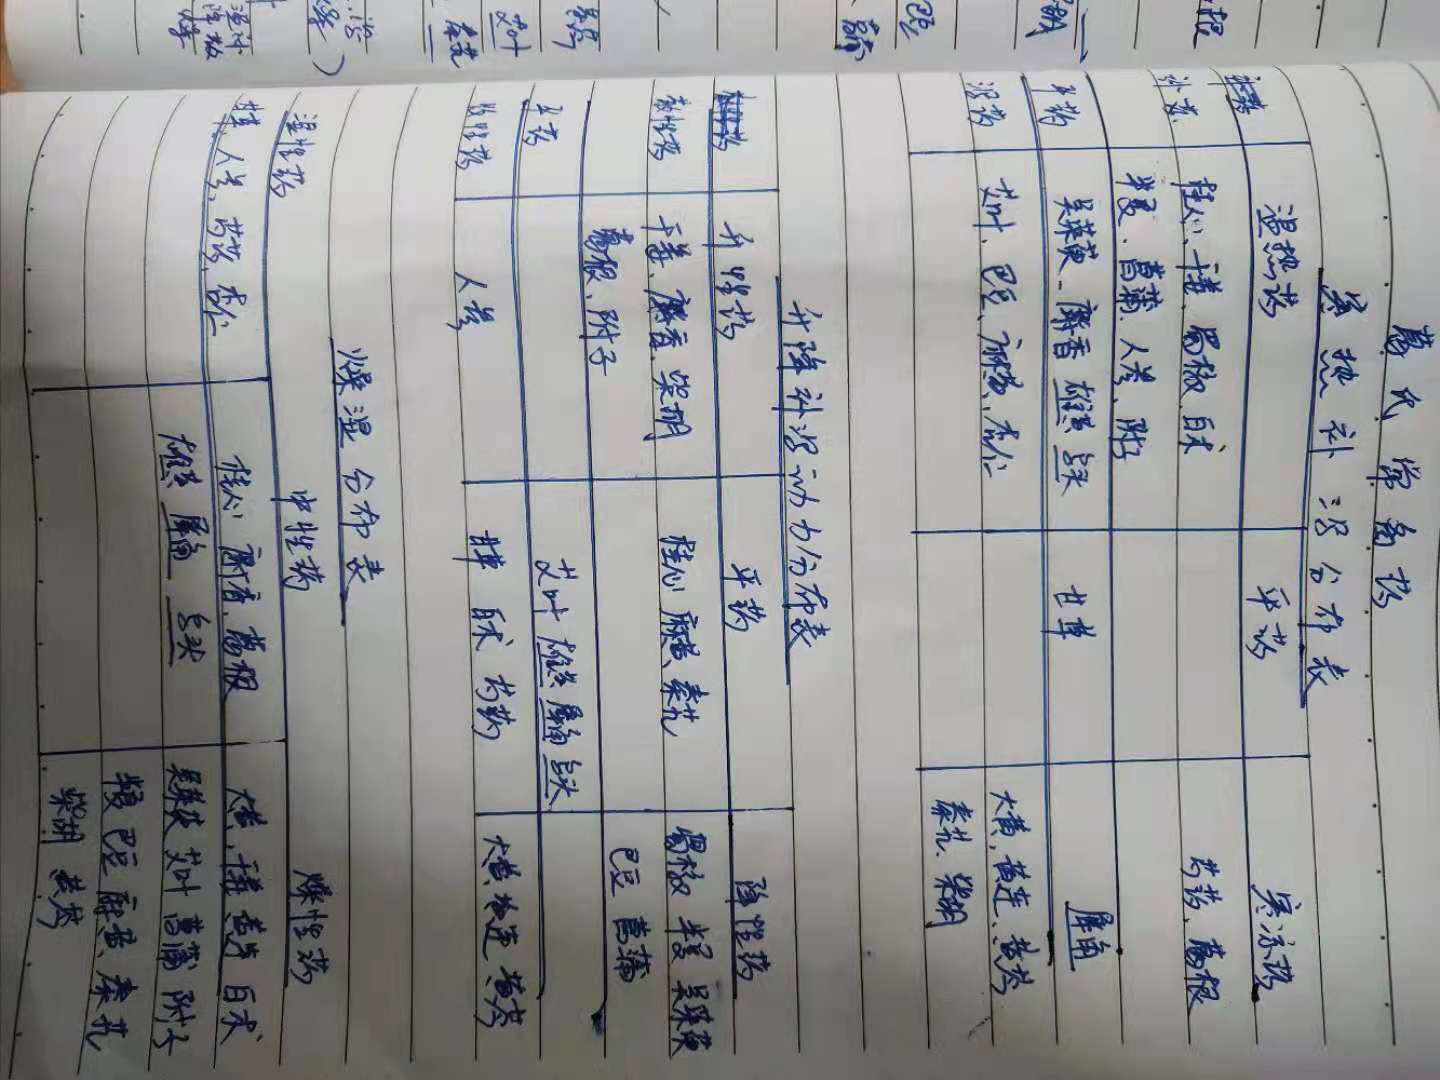 葛氏常备药
寒热补泻分布表
温热药 平药 寒凉药
补药 桂心、干姜、蜀椒、白术 芍药、葛根
半夏、菖蒲、人参、附子
平药 吴茱萸、麝香 雄黄 乌头 甘草 犀角
泻药 艾叶、巴豆、麻黄、杏仁 大黄、黄连、黄芩
秦艽、柴胡
升降补泻动力分布表
升性药 平药 降性药
散性药 干姜、麝香、柴胡 桂心 麻黄、秦艽 蜀椒 半夏 吴茱萸
葛根、附子 巴豆 菖蒲
平药 艾叶 雄黄 犀角 乌头
收性药 人参 甘草 白术 芍药 大黄、黄连、黄芩
燥湿分布表
湿性药 中性药 燥性药
甘草、人参、芍药、杏仁 桂心 麝香、葛根 大黄、干姜 黄连 白术
雄黄 犀角 乌头 吴茱萸 艾叶 菖蒲 附子
半夏 巴豆 麻黄、秦艽
柴胡 黄芩